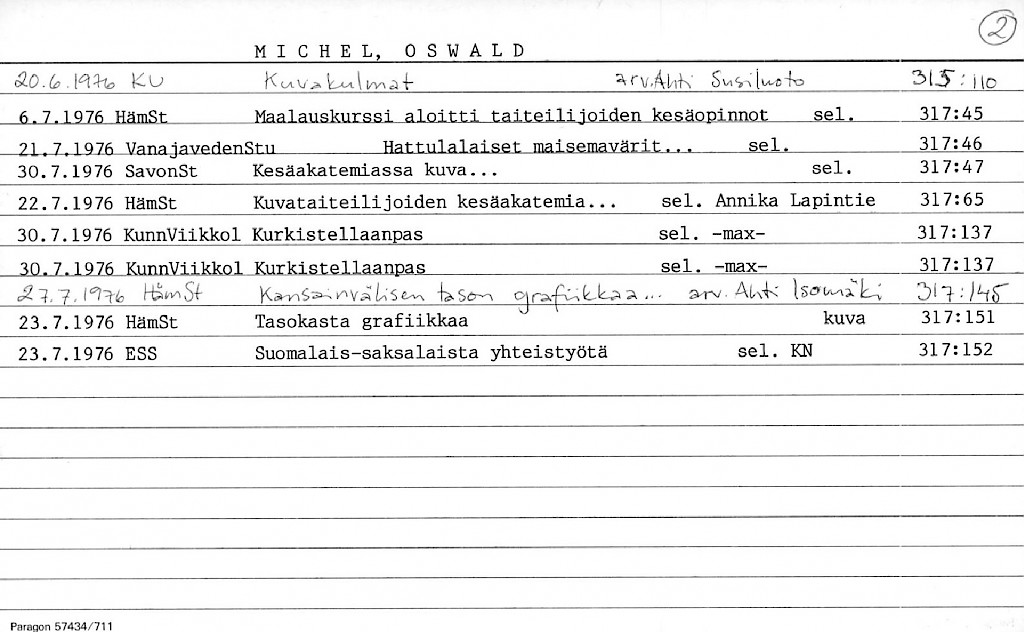 2
MICHEL, OSWALD
20.6.1976 KU Kuvakulmat arv. Ahti Susiluoto 315:110
6.7.1976 HämSt Maalauskurssi aloitti taiteilijoiden kesäopinnot sel. 317:45
21.7.1976 VanajavedenStu Hattulalaiset maisemavärit... sel. 317:46
30.7.1976 SavonSt Kesäakatemiassa kuva... sel. 317:47
22.7.1976 HämSt Kuvataiteilijoiden kesäakatemia... sel. Annika Lapintie 317:65
30.7.1976 KunnViikkol Kurkistellaanpas sel. -max- 317:137
30.7.1976 KunnViikkol Kurkistellaanpas sel. -max- 317:137
27.7.1976 HämSt Kansainvälisen tason grafiikkaa... arv. Ahti Isomäki 317:145
23.7.1976 HämSt Tasokasta grafiikkaa kuva 317:151
23.7.1976 ESS Suomalais-saksalaista yhteistyötä sel. KN 317:152
Paragon 57434/711